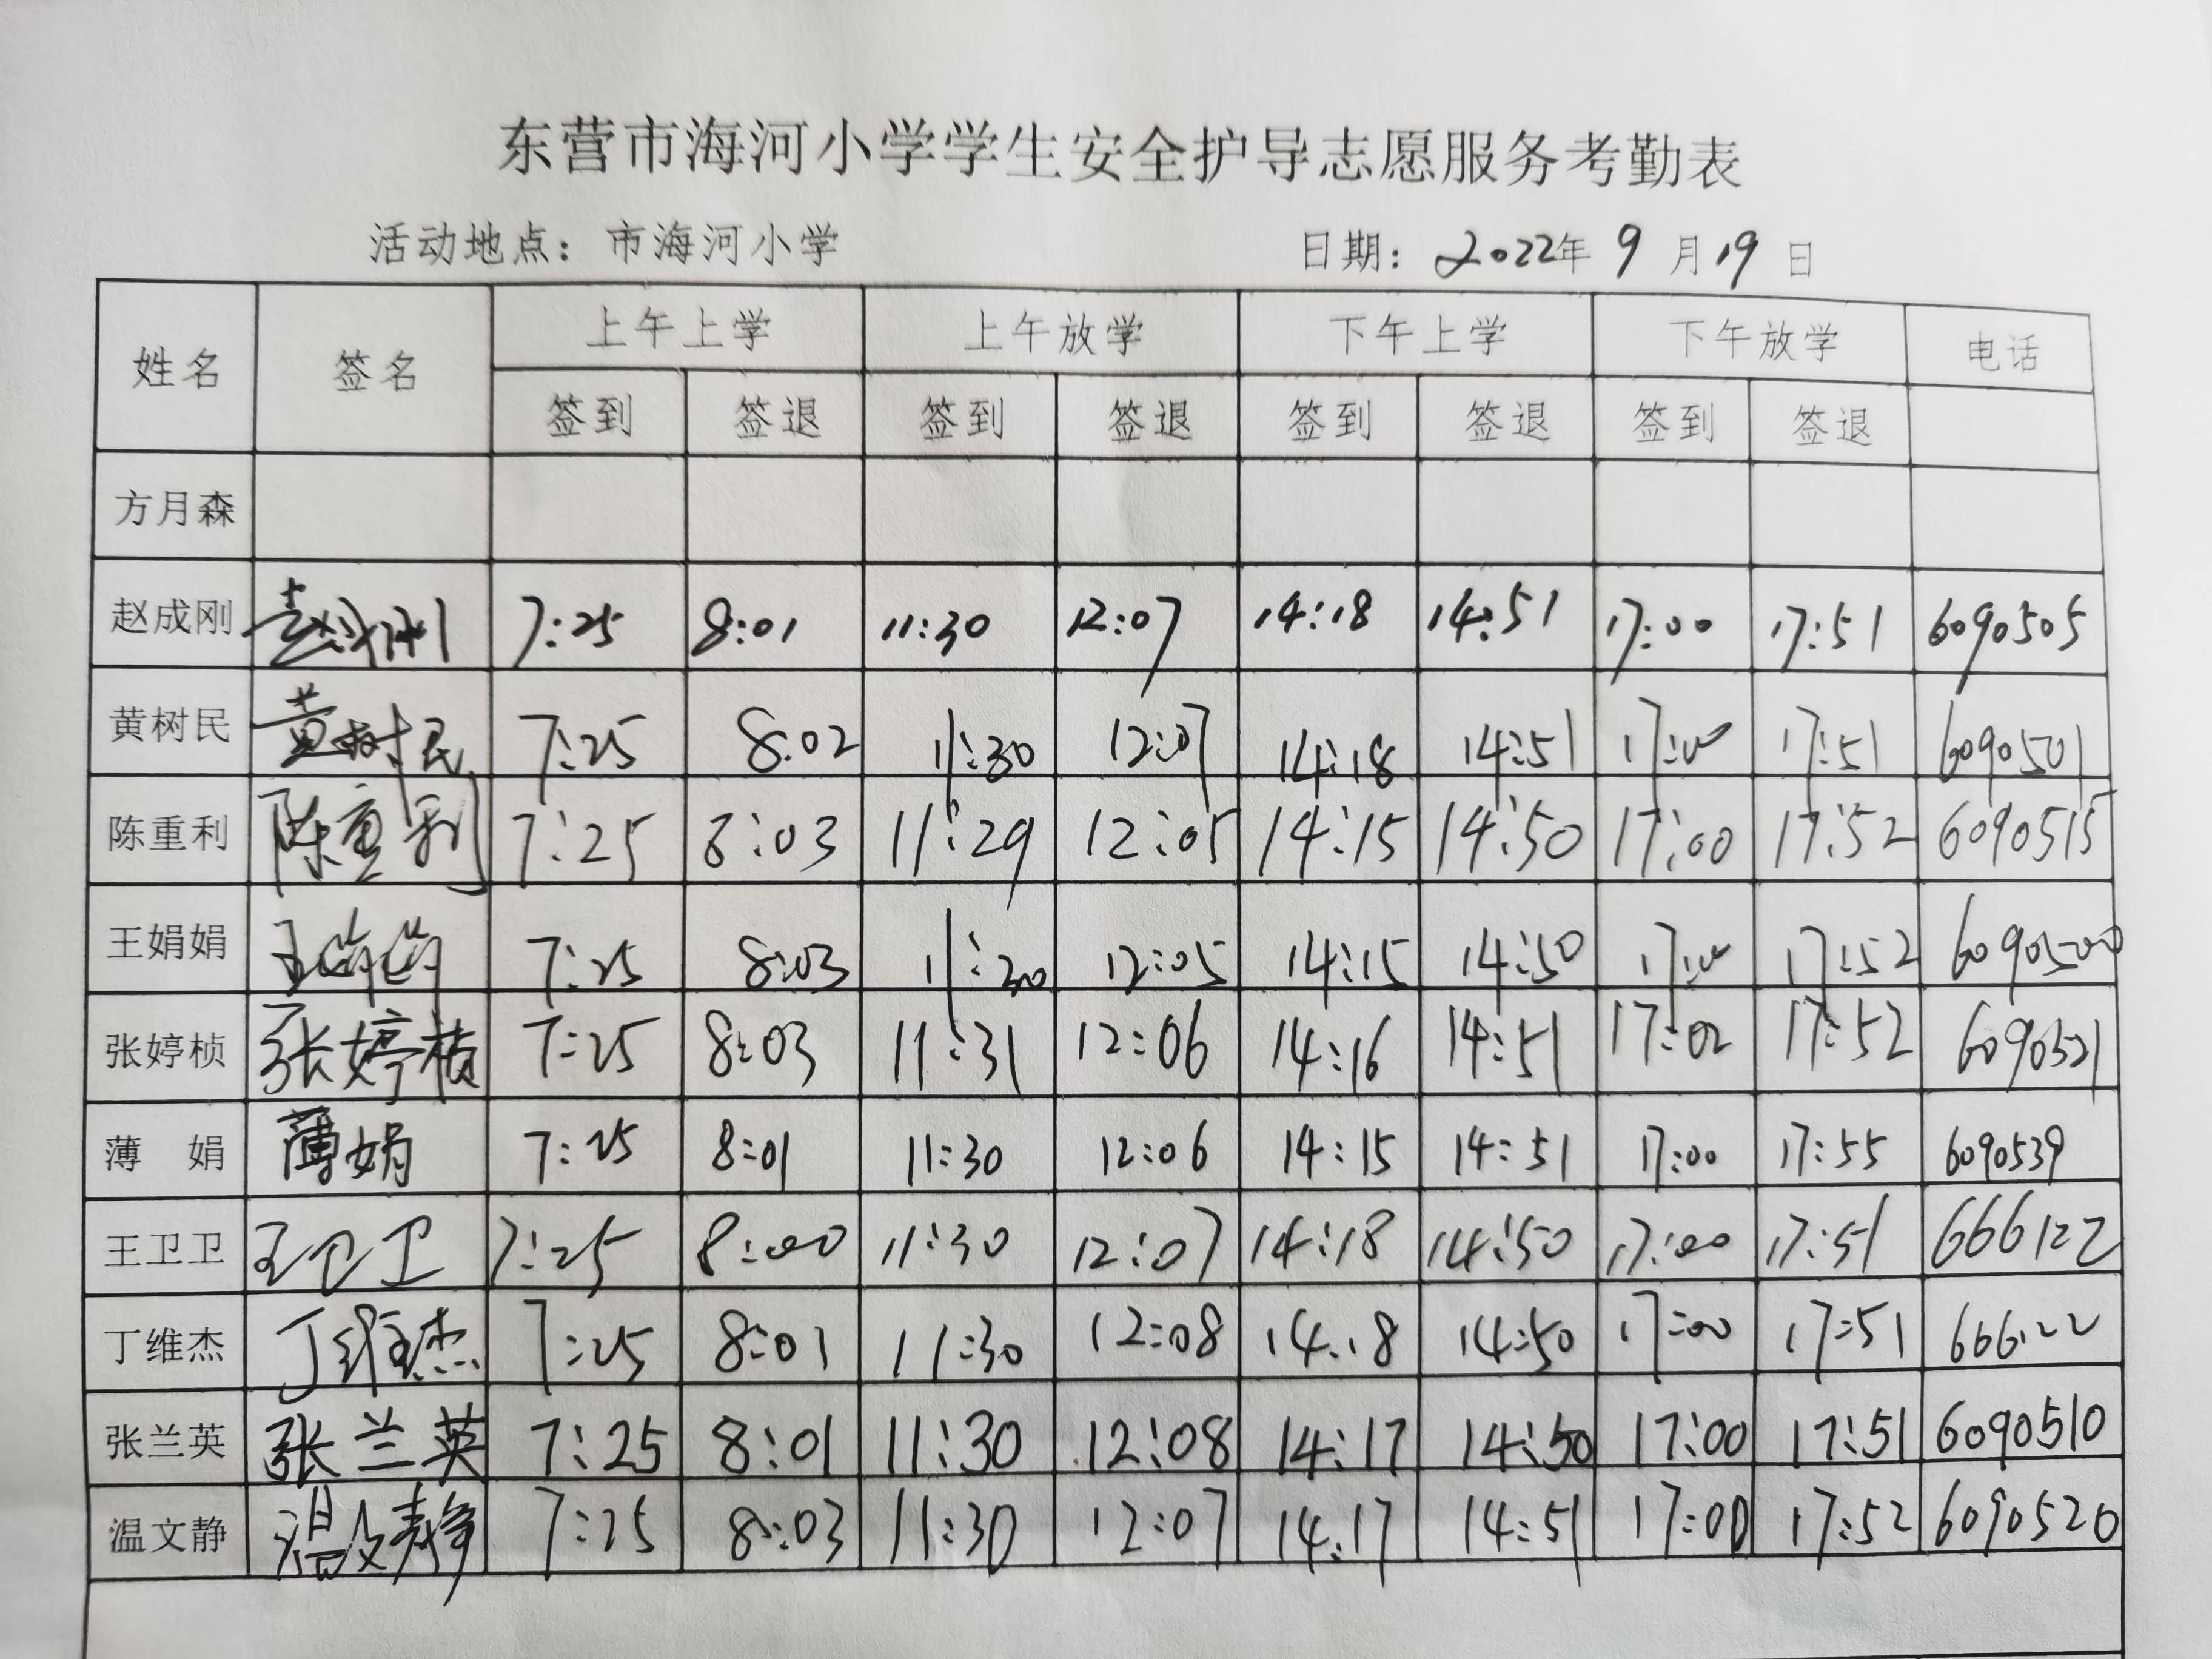 东营市海河小学学生安全护导志愿服务考勤表
活动地点：市海河小学 日期：2022年9月19日
姓名 签名 上午上学 上午放学 下午上学 下午放学 电话
签到 签退 签到 签退 签到 签退 签到 签退
方月森
赵成刚 赵成刚 7:25 8:01 11:30 12:07 14:18 14:51 17:00 17:51 6090505
黄树民 黄树民 7:25 8:02 11:30 12:07 14:18 14:51 17:00 17:51 6090501
陈重利 陈重利 7:25 8:03 11:29 12:05 14:15 14:50 17:00 17:52 6090515
王娟娟 王娟娟 7:25 8:03 11:30 12:05 14:15 14:50 17:00 17:52 6090500
张婷桢 张婷桢 7:25 8:03 11:31 12:06 14:16 14:51 17:02 17:52 6090521
薄 娟 薄娟 7:25 8:01 11:30 12:06 14:15 14:51 17:00 17:55 6090539
王卫卫 王卫卫 7:25 8:00 11:30 12:07 14:18 14:50 17:00 17:51 666122
丁维杰 丁维杰 7:25 8:01 11:30 12:08 14:18 14:50 17:00 17:51 666122
张兰英 张兰英 7:25 8:01 11:30 12:08 14:17 14:50 17:00 17:51 6090510
温文静 温文静 7:25 8:03 11:30 12:07 14:17 14:51 17:00 17:52 6090520